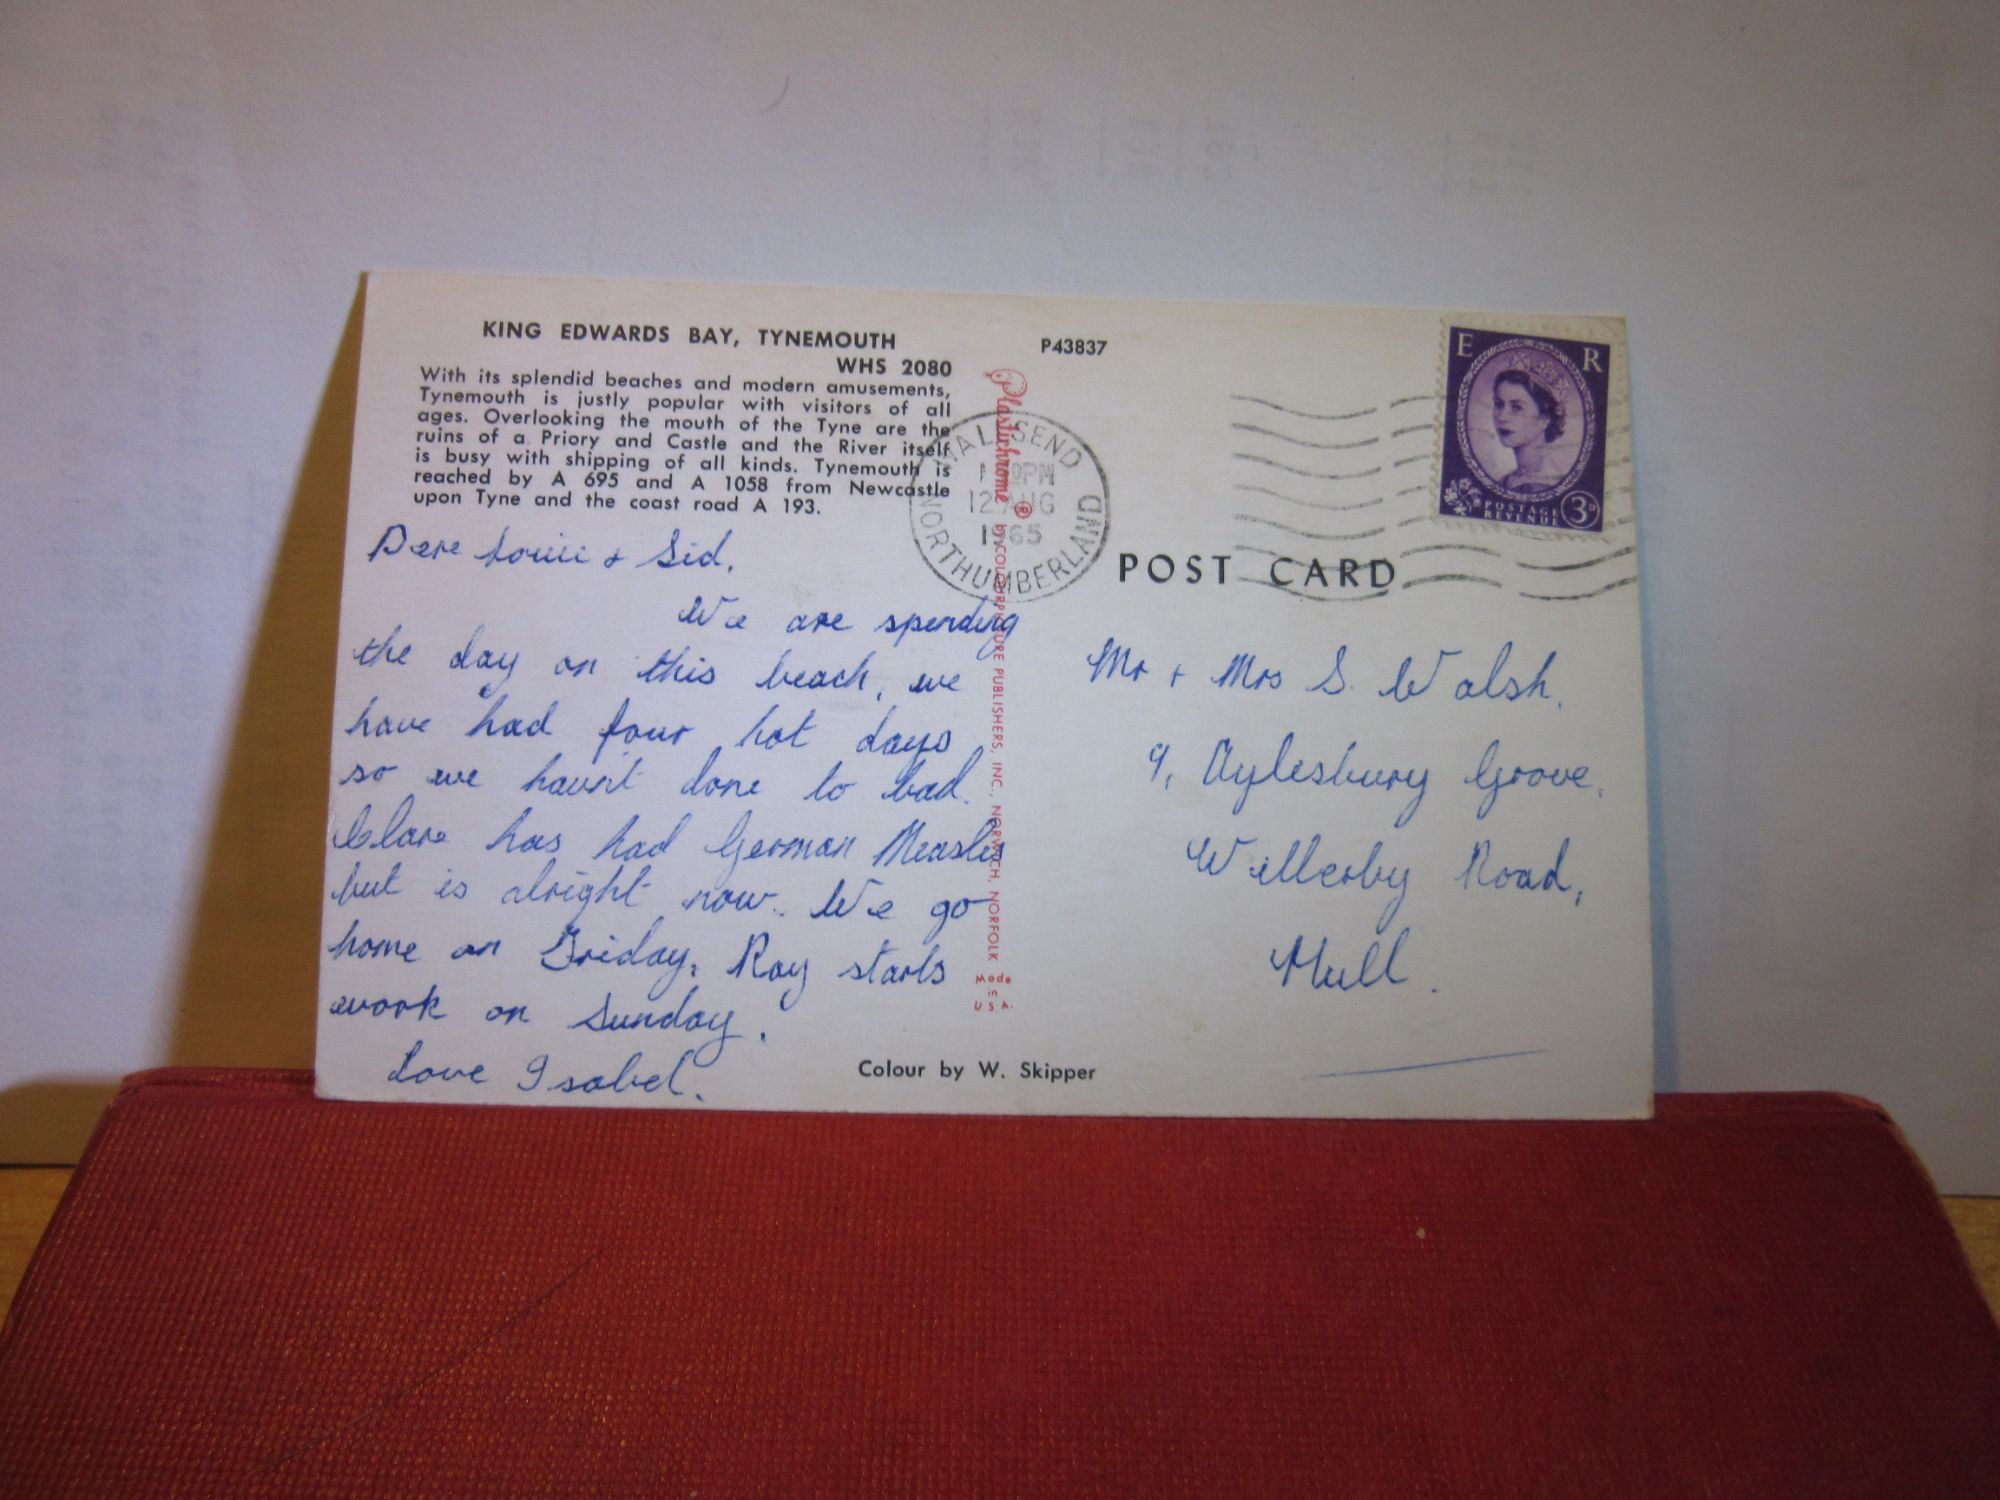 KING EDWARDS BAY, TYNEMOUTH
WHS 2080
With its splendid beaches and modern amusements,
Tynemouth is justly popular with visitors of all
ages. Overlooking the mouth of the Tyne are the
ruins of a Priory and Castle and the River itself
is busy with shipping of all kinds. Tynemouth is
reached by A 695 and A 1058 from Newcastle
upon Tyne and the coast road A 193.
Dere Louie & Sid.
We are spending
the day on this beach, we
have had four hot days
so we havn't done to bad.
Clare has had German Measles
but is alright now. We go
home on Friday, Ray starts
work on Sunday.
Love Isabel.
Plastichrome ® by COLOURPICTURE PUBLISHERS, INC., NORWICH, NORFOLK
Made
in
U S A.
Colour by W. Skipper
P43837
WALLSEND
PM
12 AUG
1965
NORTHUMBERLAND
E R
POSTAGE
REVENUE
3D
POST CARD
Mr + Mrs S. Walsh.
9, Aylesbury Grove,
Willerby Road,
Hull.